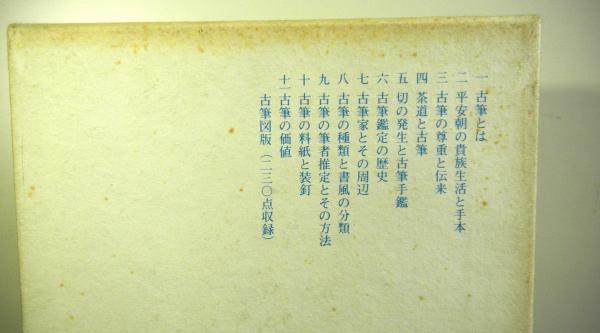 一 古筆とは
二 平安朝の貴族生活と手本
三 古筆の尊重と伝来
四 茶道と古筆
五 切の発生と古筆手鑑
六 古筆鑑定の歴史
七 古筆家とその周辺
八 古筆の種類と書風の分類
九 古筆の筆者推定とその方法
十 古筆の料紙と装釘
十一 古筆の価値
古筆図版(二三〇点収録)